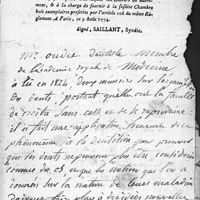 ment, & à la charge de fournir à la susdite Chambre
huit exemplaires prescrits par l'article 108 du même Ré-
glement. A Paris, ce 9 Août 1774.
Signé, SAILLANT, Syndic.
Mr. oudet Dentiste Membre
de l'academie royale de Médecine
a lu en 1824, deux memoires sur
des dents, portant quelles ont la faculté
de croitre sans cesse et de se reproduire
et en fait une application
phénomene à la dentition pour prouver
que les dents ne peuvent plus etre considerées
comme des os, en que les notions que l'on a
données sur la nature de leurs maladies
doivent